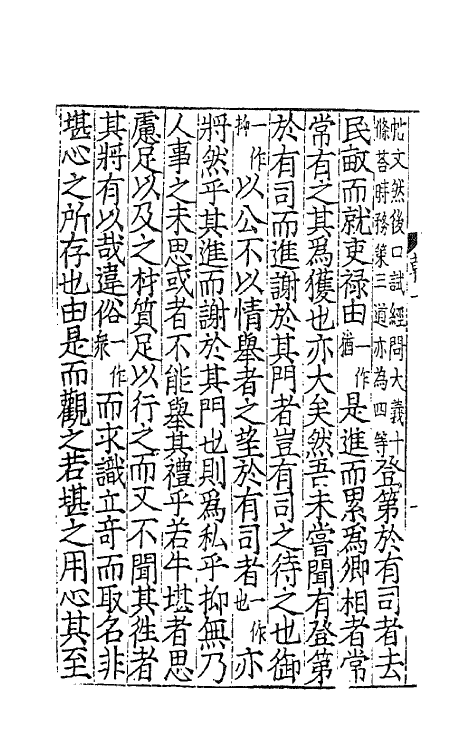 帖文然後口試經問大義十條荅時務策三道亦為四等登第於有司者去
民畝而就吏禄由一作猶是進而累爲卿相者常
常有之其爲獲也亦大矣然吾未嘗聞有登第
於有司而進謝於其門者豈有司之待之也御
一作抑以公不以情舉者之望於有司者一作也亦
將然乎其進而謝於其門也則爲私乎抑無乃
人事之未思或者不能舉其禮乎若牛堪者思
慮足以及之材質足以行之而又不聞其徃者
其將有以哉違俗一作衆而求識立奇而取名非
堪心之所存也由是而觀之若堪之用心其至